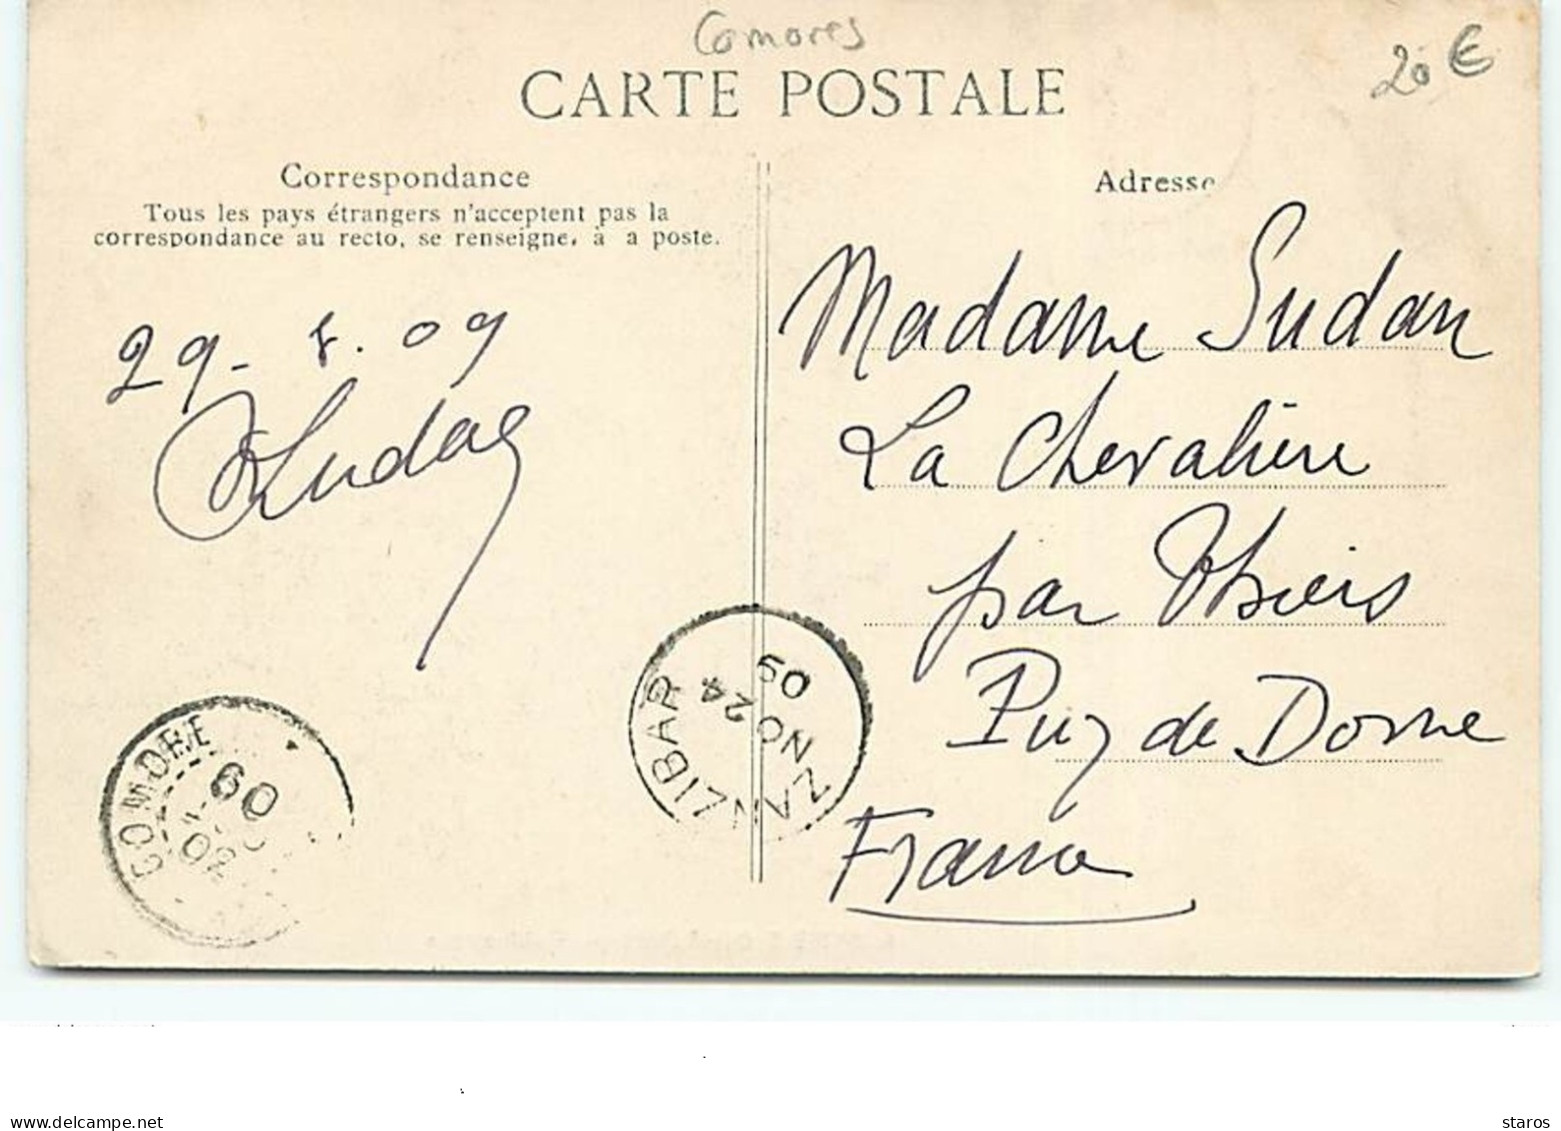 Comores
20 €
CARTE POSTALE
Correspondance
Tous les pays étrangers n'acceptent pas la
correspondance au recto, se renseigner à a poste.
Adresse
29 - 8 . 09
Sudan
Madame Sudan
La Chevalière
par Thiers
Puy de Dome
France
ZANZIBAR
NO 24
09
COMORE
09
delcampe.net
staros